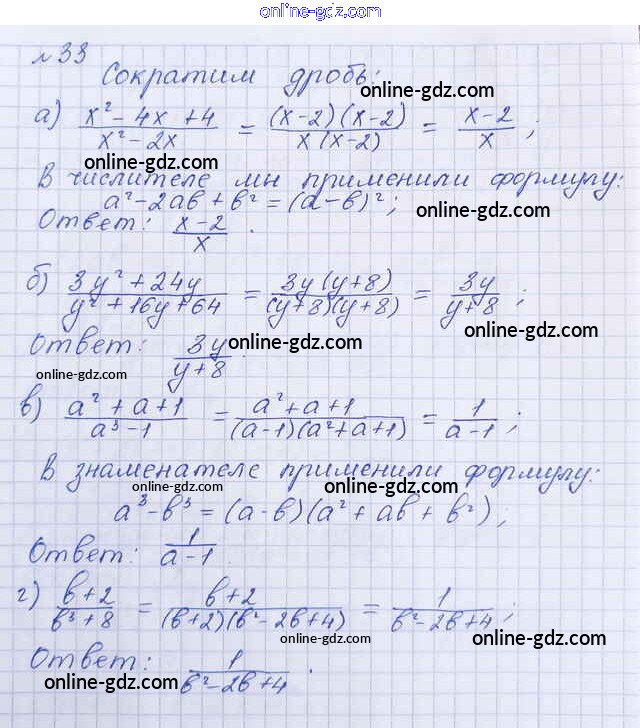 online-gdz.com
№33
Сократим дробь:
online-gdz.com
а) (x² - 4x + 4)/(x² - 2x) = ((x-2)(x-2))/(x(x-2)) = (x-2)/x ;
online-gdz.com online-gdz.com
online-gdz.com
В числителе мы применили формулу:
a² - 2ab + b² = (a-b)² ;
online-gdz.com
Ответ: (x-2)/x .
б) (3y² + 24y)/(y² + 16y + 64) = (3y(y+8))/((y+8)(y+8)) = 3y/(y+8) ;
online-gdz.com
Ответ: 3y/(y+8) .
online-gdz.com
online-gdz.com
в) (a² + a + 1)/(a³ - 1) = (a² + a + 1)/((a-1)(a² + a + 1)) = 1/(a-1) ;
online-gdz.com
В знаменателе применили формулу:
online-gdz.com online-gdz.com
a³ - b³ = (a-b)(a² + ab + b²) ;
Ответ: 1/(a-1) .
online-gdz.com
г) (b+2)/(b³ + 8) = (b+2)/((b+2)(b² - 2b + 4)) = 1/(b² - 2b + 4) ;
online-gdz.com online-gdz.com
Ответ: 1/(b² - 2b + 4) .
online-gdz.com online-gdz.com